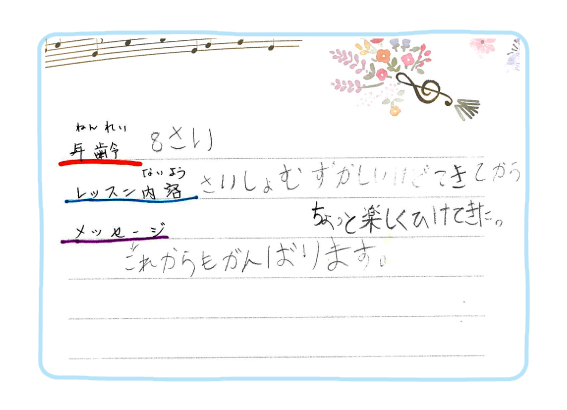 ねんれい
年齢 8さい
ないよう
レッスン内容 さいしょむずかしいけどできてから
ちょっと楽しくひけてきた。
メッセージ
これからもがんばります。